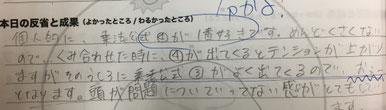 本日の反省と成果(よかったところ/わるかったところ)
個人的に、乗法公式④が1番好きです。めんどくさくない
ので。くみ合わせた時に、④が出てくるとテンションが上がり
ますがそのうしろに乗法公式③がよく出てくるので、が…
となります。頭が問題についていってない感がとてもしてい
ます